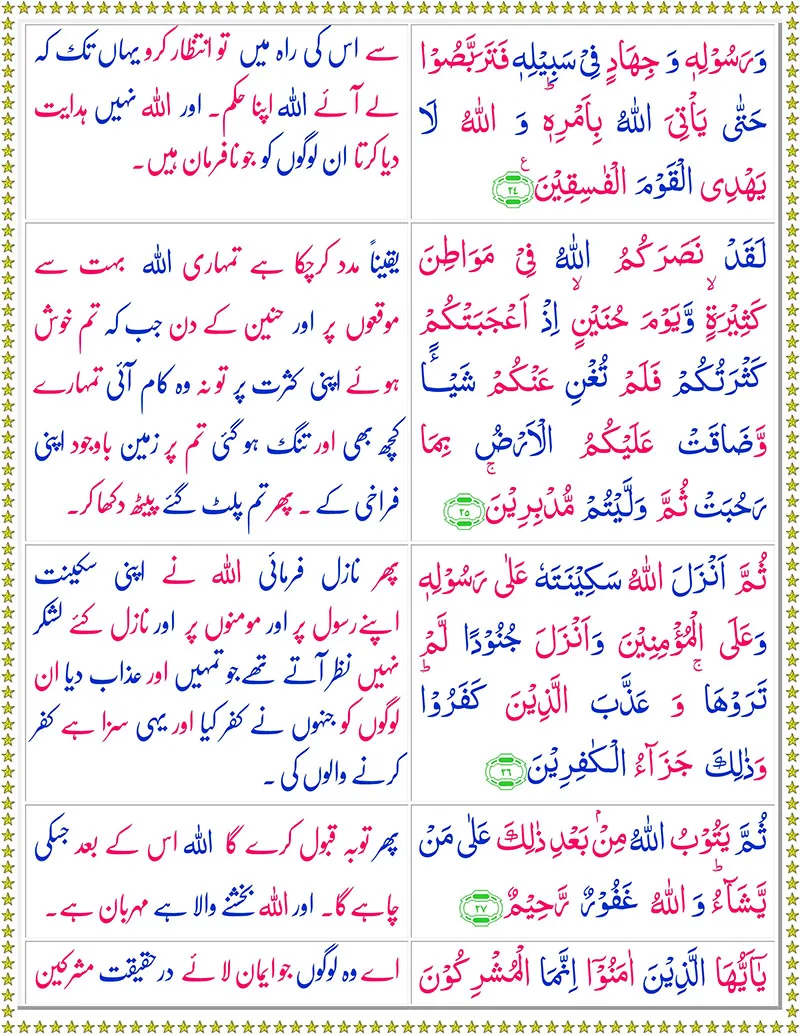 وَرَسُوْلِهٖ وَ جِهَادٍ فِىْ سَبِيْلِهٖ فَتَرَبَّصُوْا
حَتّٰى يَاْتِىَ اللّٰهُ بِاَمْرِهٖ ؕ وَ اللّٰهُ لَا
يَهْدِى الْقَوْمَ الْفٰسِقِيْنَ ؏ ٢٤
سے اس کی راہ میں تو انتظار کرو یہاں تک کہ
لے آئے اللہ اپنا حکم۔ اور اللہ نہیں ہدایت
دیا کرتا ان لوگوں کو جو نافرمان ہیں۔
لَـقَدْ نَصَرَكُمُ اللّٰهُ فِىْ مَوَاطِنَ
كَثِيْرَةٍ ۙ وَّيَوْمَ حُنَيْنٍ ۙ اِذْ اَعْجَبَـتْكُمْ
كَثْرَتُكُمْ فَلَمْ تُغْنِ عَنْكُمْ شَيْـًٔـا
وَّضَاقَتْ عَلَيْكُمُ الْاَرْضُ بِمَا
رَحُبَتْ ثُمَّ وَلَّـيْتُمْ مُّدْبِرِيْنَ ۚ ٢٥
یقیناً مدد کرچکا ہے تمہاری اللہ بہت سے
موقعوں پر اور حنین کے دن جب کہ تم خوش
ہوئے اپنی کثرت پر تو نہ وہ کام آئی تمہارے
کچھ بھی اور تنگ ہو گئی تم پر زمین باوجود اپنی
فراخی کے ۔ پھر تم پلٹ گئے پیٹھ دکھا کر۔
ثُمَّ اَنْزَلَ اللّٰهُ سَكِيْنَـتَهٗ عَلٰى رَسُوْلِهٖ
وَعَلَى الْمُؤْمِنِيْنَ وَاَنْزَلَ جُنُوْدًا لَّمْ
تَرَوْهَا ۚ وَ عَذَّبَ الَّذِيْنَ كَفَرُوْا ؕ
وَذٰلِكَ جَزَآءُ الْـكٰفِرِيْنَ ٢٦
پھر نازل فرمائی اللہ نے اپنی سکینت
اپنے رسول پر اور مومنوں پر اور نازل کئے لشکر
نہیں نظر آتے تھے جو تمہیں اور عذاب دیا ان
لوگوں کو جنہوں نے کفر کیا اور یہی سزا ہے کفر
کرنے والوں کی ۔
ثُمَّ يَتُوْبُ اللّٰهُ مِنْۢ بَعْدِ ذٰلِكَ عَلٰى مَنْ
يَّشَآءُ ؕ وَ اللّٰهُ غَفُوْرٌ رَّحِيْمٌ ٢٧
پھر توبہ قبول کرے گا اللہ اس کے بعد جسکی
چاہے گا۔ اور اللہ بخشنے والا ہے مہربان ہے۔
يٰۤاَيُّهَا الَّذِيْنَ اٰمَنُوْۤا اِنَّمَا الْمُشْرِكُوْنَ
اے وہ لوگوں جو ایمان لائے درحقیقت مشرکین